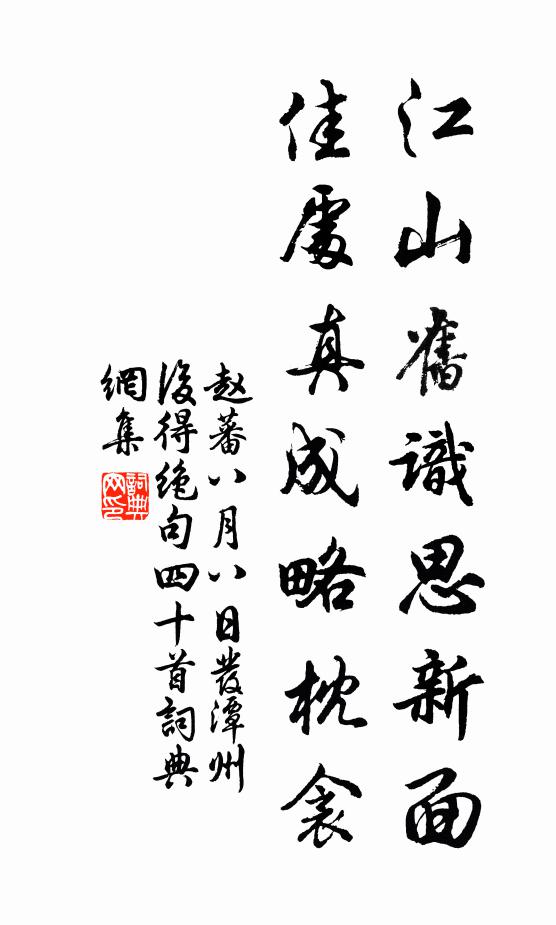 江山舊識思新面
佳處真成略枕衾
赵蕃八月八日發潭州
後得绝句四十首詞典
網集
詞典
网印